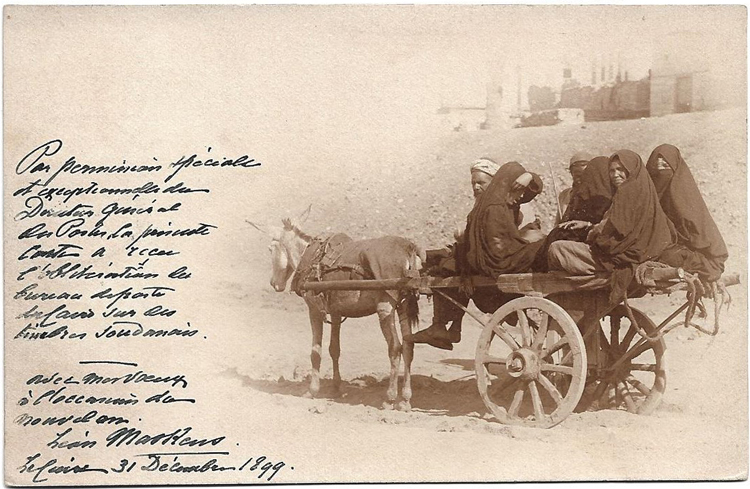 Par permission spéciale
et exceptionnelle du
Directeur Général
des Postes, la présente
Carte a reçu
l'oblitération du
bureau de poste
du Caire sur des
timbres soudanais.
avec mes vœux
à l'occasion du
nouvel an.
Le Caire 31 Décembre 1899.